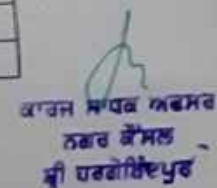 ਕਾਰਜ ਸਾਧਕ ਅਫਸਰ
ਨਗਰ ਕੌਂਸਲ
ਸ੍ਰੀ ਹਰਗੋਬਿੰਦਪੁਰ